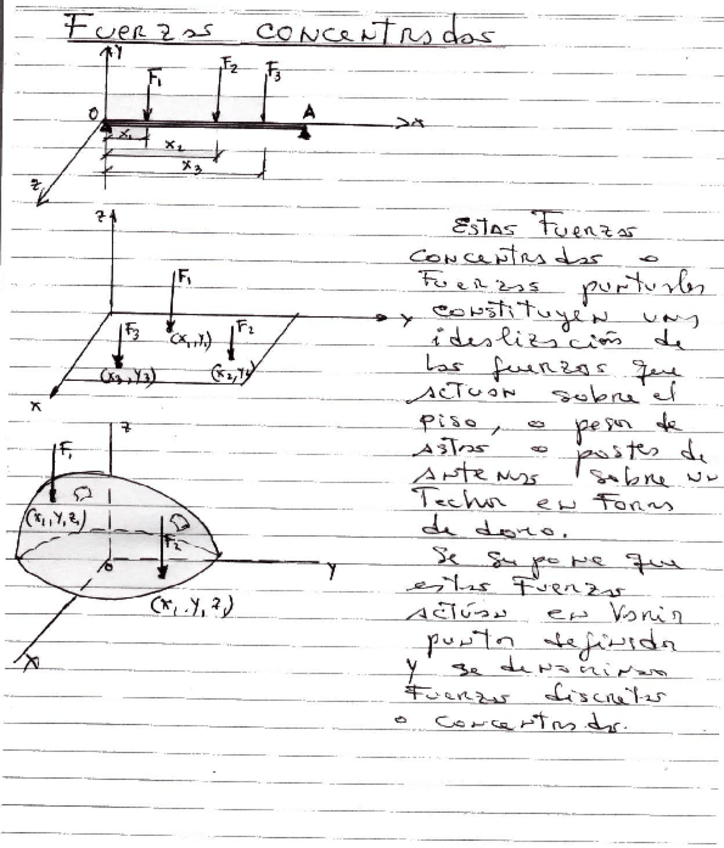 Fuerzas concentradas
Y
F1
F2
F3
O
A
x
x1
x2
x3
z
z
F1
Y
F3
(x1,Y1)
F2
(x3,Y3)
(x2,Y2)
x
Estas Fuerzas
concentradas o
Fuerzas puntuales
constituyen una
idealización de
las fuerzas que
actuan sobre el
piso, o pesos de
astas o postes de
antenas sobre un
Techo en Forma
de domo.
Se supone que
estas Fuerzas
actúan en varios
puntos definidos
y se denominan
Fuerzas discretas
o concentradas.
z
F1
(x1,Y,z1)
F2
o
Y
(x1.Y,z1)
X